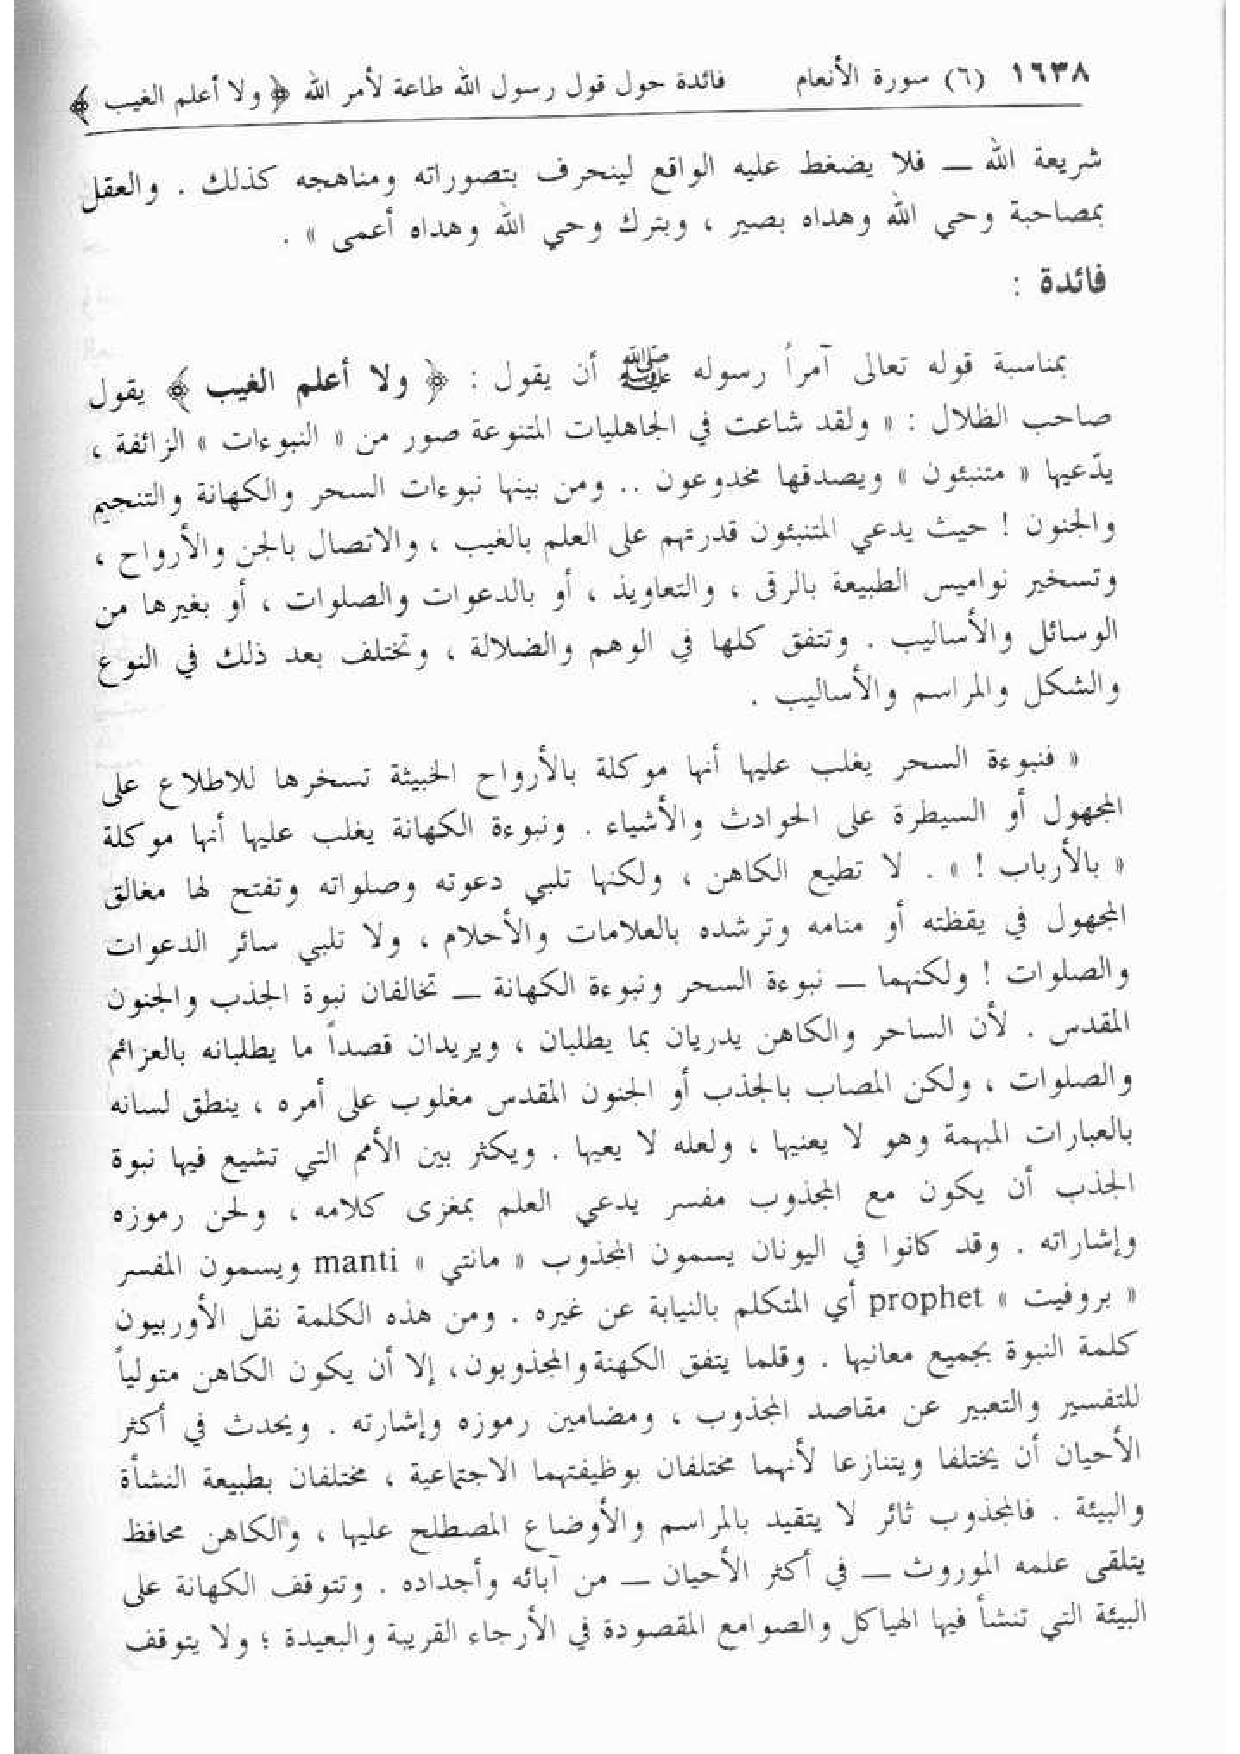 ١٦٣٨ (٦) سورة الأنعام فائدة حول قول رسول الله طاعة لأمر الله ﴿ ولا أعلم الغيب ﴾
شريعة الله ــ فلا يضغط عليه الواقع لينحرف بتصوراته ومناهجه كذلك . والعقل
بمصاحبة وحي الله وهداه بصير ، وبترك وحي الله وهداه أعمى » .
فائدة :
بمناسبة قوله تعالى آمراً رسوله ﷺ أن يقول : ﴿ ولا أعلم الغيب ﴾ يقول
صاحب الظلال : « ولقد شاعت في الجاهليات المتنوعة صور من « النبوءات » الزائفة ،
يدّعيها « متنبئون » ويصدقها مخدوعون .. ومن بينها نبوءات السحر والكهانة والتنجيم
والجنون ! حيث يدعي المتنبئون قدرتهم على العلم بالغيب ، والاتصال بالجن والأرواح ،
وتسخير نواميس الطبيعة بالرقى ، والتعاويذ ، أو بالدعوات والصلوات ، أو بغيرها من
الوسائل والأساليب . وتتفق كلها في الوهم والضلالة ، وتختلف بعد ذلك في النوع
والشكل والمراسم والأساليب .
« فنبوءة السحر يغلب عليها أنها موكلة بالأرواح الخبيثة تسخرها للاطلاع على
المجهول أو السيطرة على الحوادث والأشياء . ونبوءة الكهانة يغلب عليها أنها موكلة
« بالأرباب ! » . لا تطيع الكاهن ، ولكنها تلبي دعوته وصلواته وتفتح لها مغالق
المجهول في يقظته أو منامه وترشده بالعلامات والأحلام ، ولا تلبي سائر الدعوات
والصلوات ! ولكنهما ــ نبوءة السحر ونبوءة الكهانة ــ تخالفان نبوة الجذب والجنون
المقدس . لأن الساحر والكاهن يدريان بما يطلبان ، ويريدان قصداً ما يطلبانه بالعزائم
والصلوات ، ولكن المصاب بالجذب أو الجنون المقدس مغلوب على أمره ، ينطق لسانه
بالعبارات المبهمة وهو لا يعنيها ، ولعله لا يعيها . ويكثر بين الأمم التي تشيع فيها نبوة
الجذب أن يكون مع المجذوب مفسر يدعي العلم بمغزى كلامه ، ولحن رموزه
وإشاراته . وقد كانوا في اليونان يسمون المجذوب « مانتي » manti ويسمون المفسر
« بروفيت » prophet أي المتكلم بالنيابة عن غيره . ومن هذه الكلمة نقل الأوربيون
كلمة النبوة بجميع معانيها . وقلما يتفق الكهنة والمجذوبون، إلا أن يكون الكاهن متولياً
للتفسير والتعبير عن مقاصد المجذوب ، ومضامين رموزه وإشارته . ويحدث في أكثر
الأحيان أن يختلفا ويتنازعا لأنهما مختلفان بوظيفتهما الاجتماعية ، مختلفان بطبيعة النشأة
والبيئة . فالمجذوب ثائر لا يتقيد بالمراسم والأوضاع المصطلح عليها ، والكاهن محافظ
يتلقى علمه الموروث ــ في أكثر الأحيان ــ من آبائه وأجداده . وتتوقف الكهانة على
البيئة التي تنشأ فيها الهياكل والصوامع المقصودة في الأرجاء القريبة والبعيدة ؛ ولا يتوقف